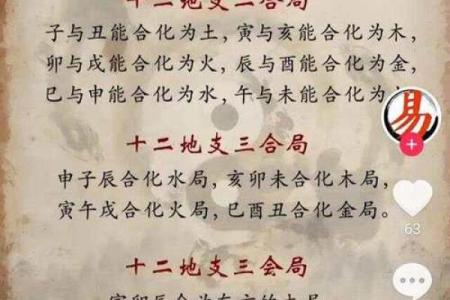 十二地支二合局
子与丑能合化为土，寅与亥能合化为木，
卯与戌能合化为火，辰与酉能合化为金，
巳与申能合化为水，午与未能合化为
易
十二地支三合局
申子辰合化水局，亥卯未合化木局，
寅午戌合化火局，巳酉丑合化金局。
63
十二地支三会局
寅卯辰会为东方的木局